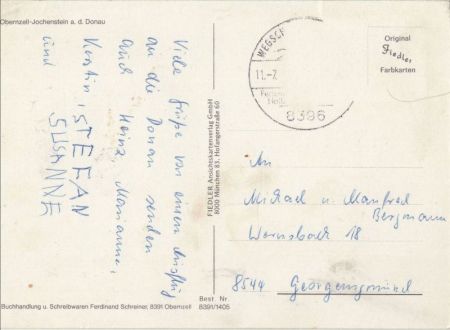 Obernzell-Jochenstein a. d. Donau
Viele Grüße von einem Ausflug
an die Donau senden
Euch Heinz, Marianne,
Kerstin, STEFAN
und SUSANNE
Original
Fiedler
Farbkarten
WEGSCH
11.-7.
8396
An
Michael u. Manfred
Bergmann
Wernsbach 18
8544 Georgensgmünd
FIEDLER Ansichtskartenverlag GmbH
8000 München 83, Hofangerstraße 60
Buchhandlung u. Schreibwaren Ferdinand Schreiner, 8391 Obernzell
Best. Nr.
8391/1405